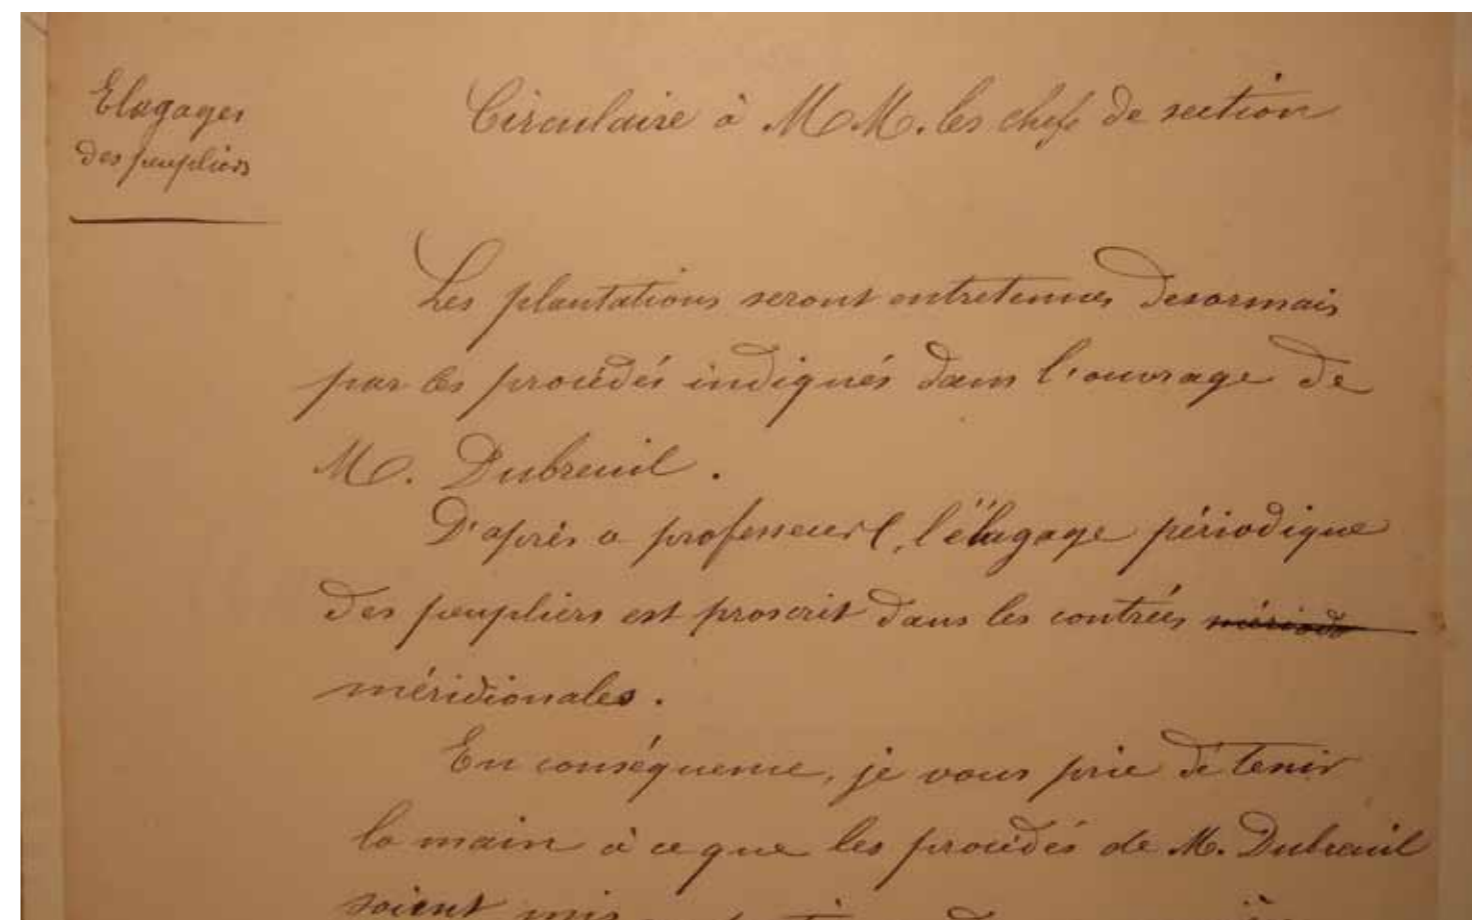 Elagages
des peupliers
Circulaire à M.M. les chefs de section
Les plantations seront entretenues desormais
par les procédés indiqués dans l'ouvrage de
M. Dubreuil.
D'après ce professeur, l'élagage périodique
des peupliers est proscrit dans les contrées
méridionales.
En conséquence, je vous prie de tenir
la main à ce que les procédés de M. Dubreuil
soient mis